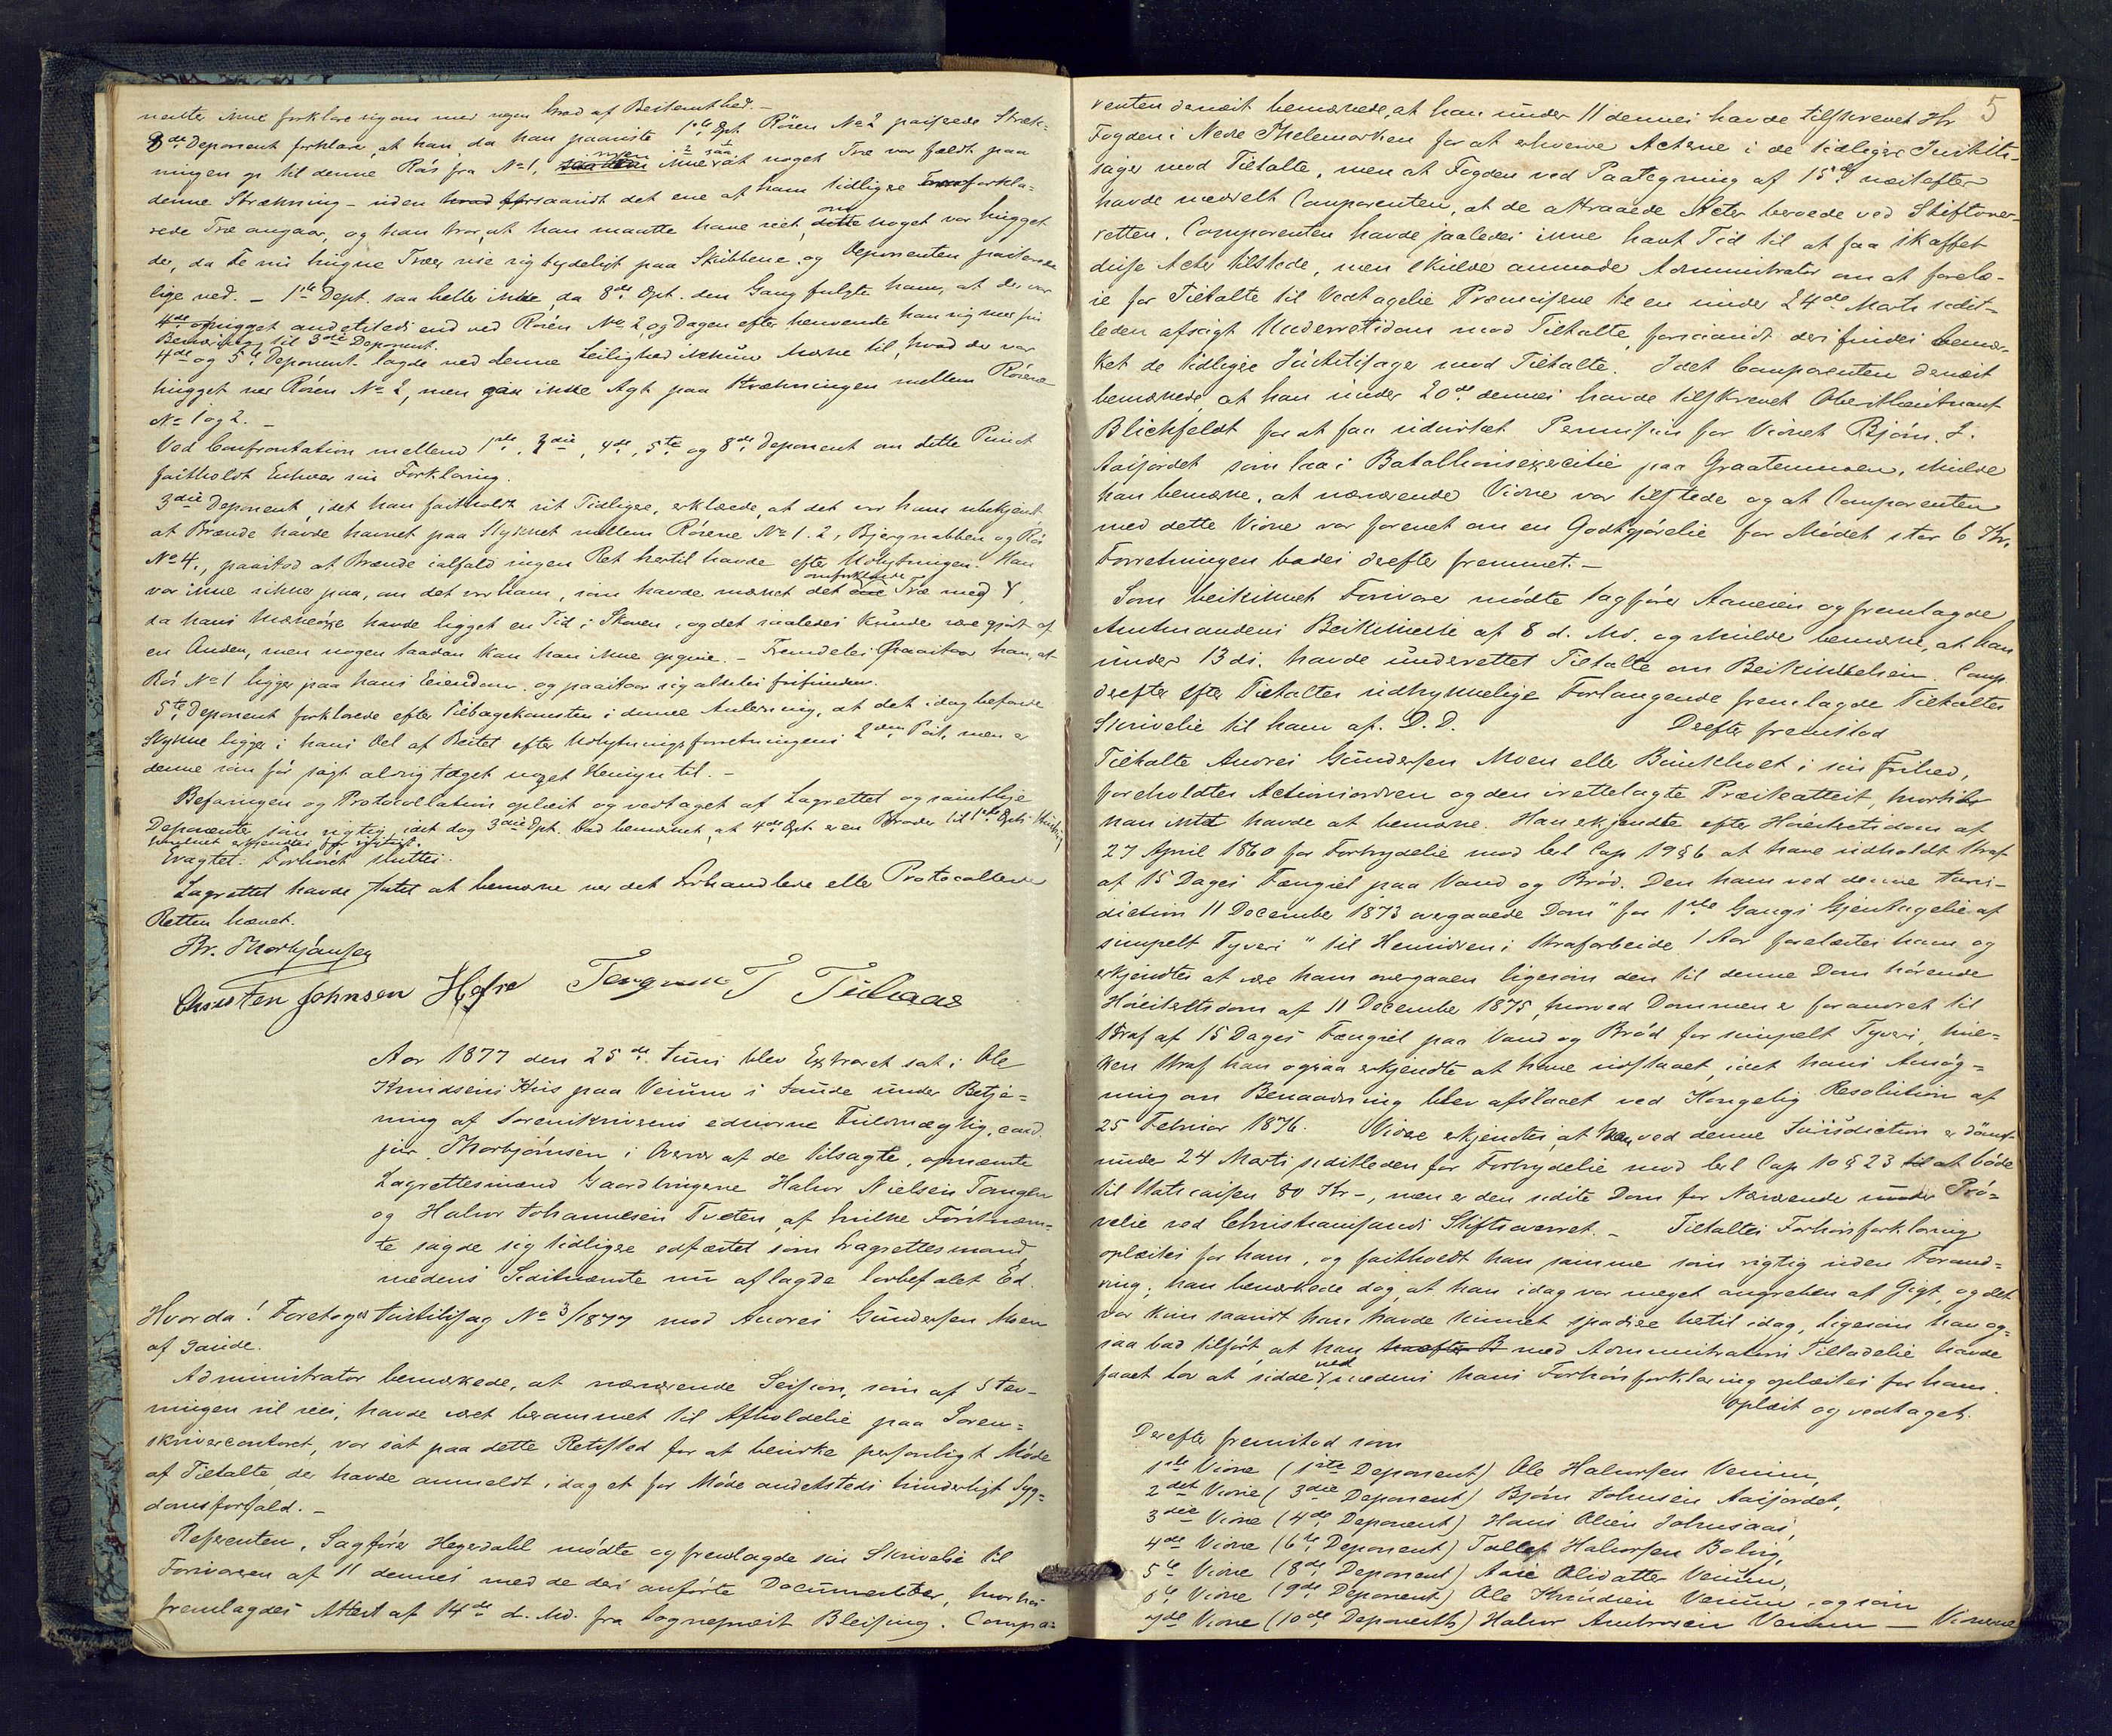 nenter ikke forklare sig om med nogen Grad af Bestemthed. –
8de Deponent forklarer, at han, da han paaviste 1ste Dpt. Røsen No 2 passerede Stræk-
ningen op til denne Røs fra No 1, men ikke saa at noget Træ var fældt paa
denne Strækning – uden forsaavidt det ene af ham tidligere forkla-
rede Træ angaar, og han tror, at han maatte have seet, om noget var hugget
der, da de nu hugne Træer vise sig tydeligt paa Stubbene og Deponenten passerede
lige ved. – 1ste Dept. saa heller ikke da 8de Dpt. den Gang fulgte ham, at der var
hugget andetsteds end ved Røsen No 2, og Dagen efter henvendte han sig med sin
Bemærkning til 3die Deponent.
4de og 5te Deponent lagde ved denne Leilighed Mærke til, hvad der var
hugget ved Røsen No 2, men gav ikke Agt paa Strækningen mellem Røsene
No 1 og 2. –
Ved Confrontation mellem 1ste, 3die, 4de, 5te og 8de Deponent om dette Punct
fastholdt Enhver sin Forklaring.
3die Deponent, idet han fastholdt sit Tidligere, erklærede, at det var ham ubekjendt
at Brænde havde havnet paa Stykket mellem Røsene No 1. 2, Bjergnabben og Røs
No 4., paastod at Brænde ialfald ingen Ret hertil havde efter Udskiftningen. Han
var ikke sikker paa, om det var ham, som havde mærket det omforklarede Træ med Y,
da hans Mærkeøxe havde ligget en Tid i Skoven, og det saaledes kunde være gjort af
en Anden, men nogen saadan kan han ikke opgive. – Fremdeles paastaar han, at
Røs No 1 ligger paa hans Eiendom og paastaar sig aldeles frifunden.
5te Deponent forklarede efter Tilbagekomsten i denne Anledning, at det idag befarede
Stykke ligger i hans Del af Beitet efter Udskiftningsforretningens 2den Post, men er
denne som før sagt aldrig taget noget Hensyn til. –
Befaringen og Protocollation oplæst og vedtaget af Lagrettet og samtlige
Deponenter som rigtig, idet dog 3die Dpt. bad bemærket, at 4de Dpt. er en Broder til 1ste Dpts
erkjendtes for rigtigt.
Eragtet: Forhøret sluttes.
Lagrettet havde Intet at bemærke ved det Forhandlede eller Protocollerede
Retten hævet.
Br. Thorbjørnsen
Christen Johnsen Hofse Tergius T Tubaas
Aar 1877 den 25de Juni blev Extraret sat i Ole
Knudsens Hus paa Venum i Saude under Betje-
ning af Sorenskriverens edsvorne Fuldmægtig, cand.
jur. Thorbjørnsen i Overvær af de tilsagte, opnævnte
Lagrettesmænd Gaardbrugerne Halvor Nielsen Tangen
og Halvor Johannesen Tveten, af hvilke Førstnævn-
te sagde sig tidligere edfæstet som Lagrettesmand
medens Sidstnævnte nu aflagde lovbefalet Ed.
Hvorda! Foretoges Justitssag No 3/1877 mod Andres Gundersen Moen
af Saude.
Administrator bemærkede, at nærværende Session, som af Stæv-
ningen vil sees, havde været berammet til Afholdelse paa Soren-
skrivercontoret, var sat paa dette Retssted for at bevirke personligt Møde
af Tiltalte, der havde anmeldt, idag et for Møde andetsteds hinderligt Syg-
domsforfald. –
Referenten, Sagfører Hegerdahl mødte og fremlagde sin Skrivelse til
Forsvareren af 11 dennes med de der anførte Documenter, hvorhos
fremlagdes Attest af 14de d. Md. fra Sognepræst Blessing. Compa-
5
renten dernæst bemærkede, at han under 11 dennes havde tilskrevet Hr
Fogden i Nedre Thelemarken for at erhverve Acterne i de tidligere Justits-
sager mod Tiltalte, men at Fogden ved Paategning af 15de næstefter
havde meddelt Comparenten, at de attraaede Acter beroede ved Stiftover-
retten. Comparenten havde saaledes ikke havt Tid til at faa skaffet
disse Acter tilstede, men skulde anmode Administrator om at forelæ-
se for Tiltalte til Vedtagelse Præmisserne til en under 24de Marts sidst-
leden afsagt Underretsdom mod Tiltalte, forsaavidt deri findes bemær-
ket de tidligere Justitssager mod Tiltalte. Idet Comparenten dernæst
bemærkede, at han under 20de dennes havde tilskrevet Oberstlieutnant
Blichfeldt for at faa udvirket Permission for Vidnet Bjørn J.
Aasjordet som laa i Bataillonsexercitie paa Graatenmoen, skulde
han bemærke, at nærværende Vidne var tilstede og at Comparenten
med dette Vidne var forenet om en Godtgjørelse for Mødet stor 6 Kr.
Forretningen bades derefter fremmet. –
Som beskikket Forsvarer mødte Sagfører Aanesen og fremlagde
Amtmandens Beskikkelse af 8 d. Md. og skulde bemærke, at han
under 13 ds. havde underrettet Tiltalte om Beskikkelsen. Comp.
derefter efter Tiltaltes udtrykkelige Forlangende fremlagde Tiltaltes
Skrivelse til ham af D. D. Derefter fremstod
Tiltalte Andres Gundersen Moen eller Buskhvet i sin Frihed,
foreholdtes Actionsordren og den irettelagte Præsteattest, hvortil
han Intet havde at bemærke. Han erkjendte efter Høiesteretsdom af
27 April 1860 for Forbrydelse mod lov Cap 19 § 6 at have udholdt Straf
af 15 Dages Fængsel paa Vand og Brød. Den ham ved denne Juris-
diction 11 December 1873 overgaaede Dom "for 1ste Gangs Gjentagelse af
simpelt Tyveri" til Hensidden i Strafarbeide 1 Aar forelæstes ham og
erkjendtes at være ham overgaaen ligesom den til denne Dom hørende
Høiesteretsdom af 11 December 1875, hvorved Dommen er forandret til
Straf af 15 Dages Fængsel paa Vand og Brød for simpelt Tyveri, hvil-
ken Straf han ogsaa erkjendte at have udstaaet, idet hans Ansøg-
ning om Benaadning blev afslaaet ved Kongelig Resolution af
25 Februar 1876. Videre erkjendtes, at han ved denne Jurisdiction er dømt
under 24 Marts sidstleden for Forbrydelse mod lov Cap 10 § 23 at bøde
til Statscassen 80 Kr –, men er den sidste Dom for Nærværende under Prø-
velse ved Christianssands Stiftsoverret. – Tiltaltes Forhørsforklaring
oplæstes for ham, og fastholdt han samme som rigtig uden Forand-
ring; han bemærkede dog, at han idag var meget angreben af Gigt, og det
var kun saavidt han havde kunnet spadsere hertil idag, ligesom han og-
saa bad tilført, at han med Administrators Tilladelse havde
faaet Lov at sidde ned medens hans Forhørsforklaring oplæstes for ham.
Oplæst og vedtaget.
Derefter fremstod som
1ste Vidne (1ste Deponent) Ole Halvorsen Venum,
2det Vidne (3die Deponent) Bjørn Johnsen Aasjordet,
3die Vidne (4de Deponent) Hans Olsen Johnsaas,
4de Vidne (6te Deponent) Tollef Halvorsen Bolvig,
5te Vidne (8de Deponent) Aase Olsdatter Venum,
6te Vidne (9de Deponent) Ole Knudsen Venum, og som
7de Vidne (10de Deponent) Halvor Ambrosen Venum — Vidnerne